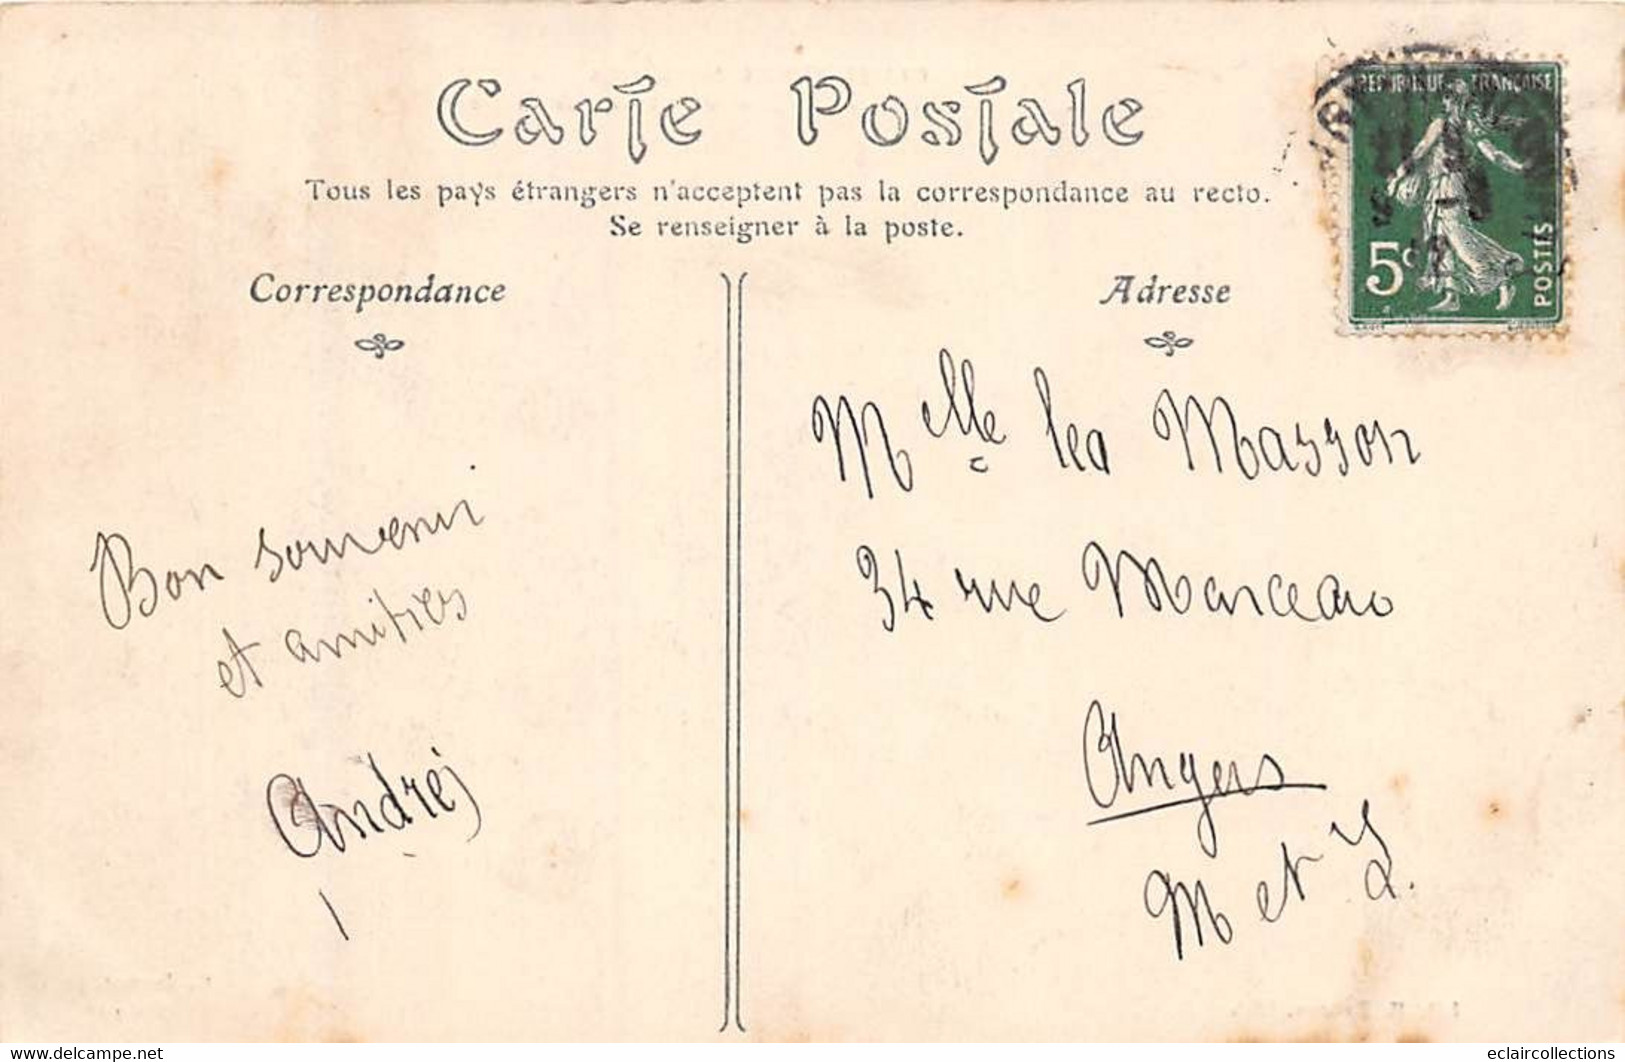 Carte Postale
Tous les pays étrangers n'acceptent pas la correspondance au recto.
Se renseigner à la poste.
Correspondance
Adresse
REPUBLIQUE FRANÇAISE
5c
POSTES
Melle Léa Masson
34 rue Marceau
Angers
M et L.
Bon souvenir
et amitiés
André
www.delcampe.net
eclaircollections